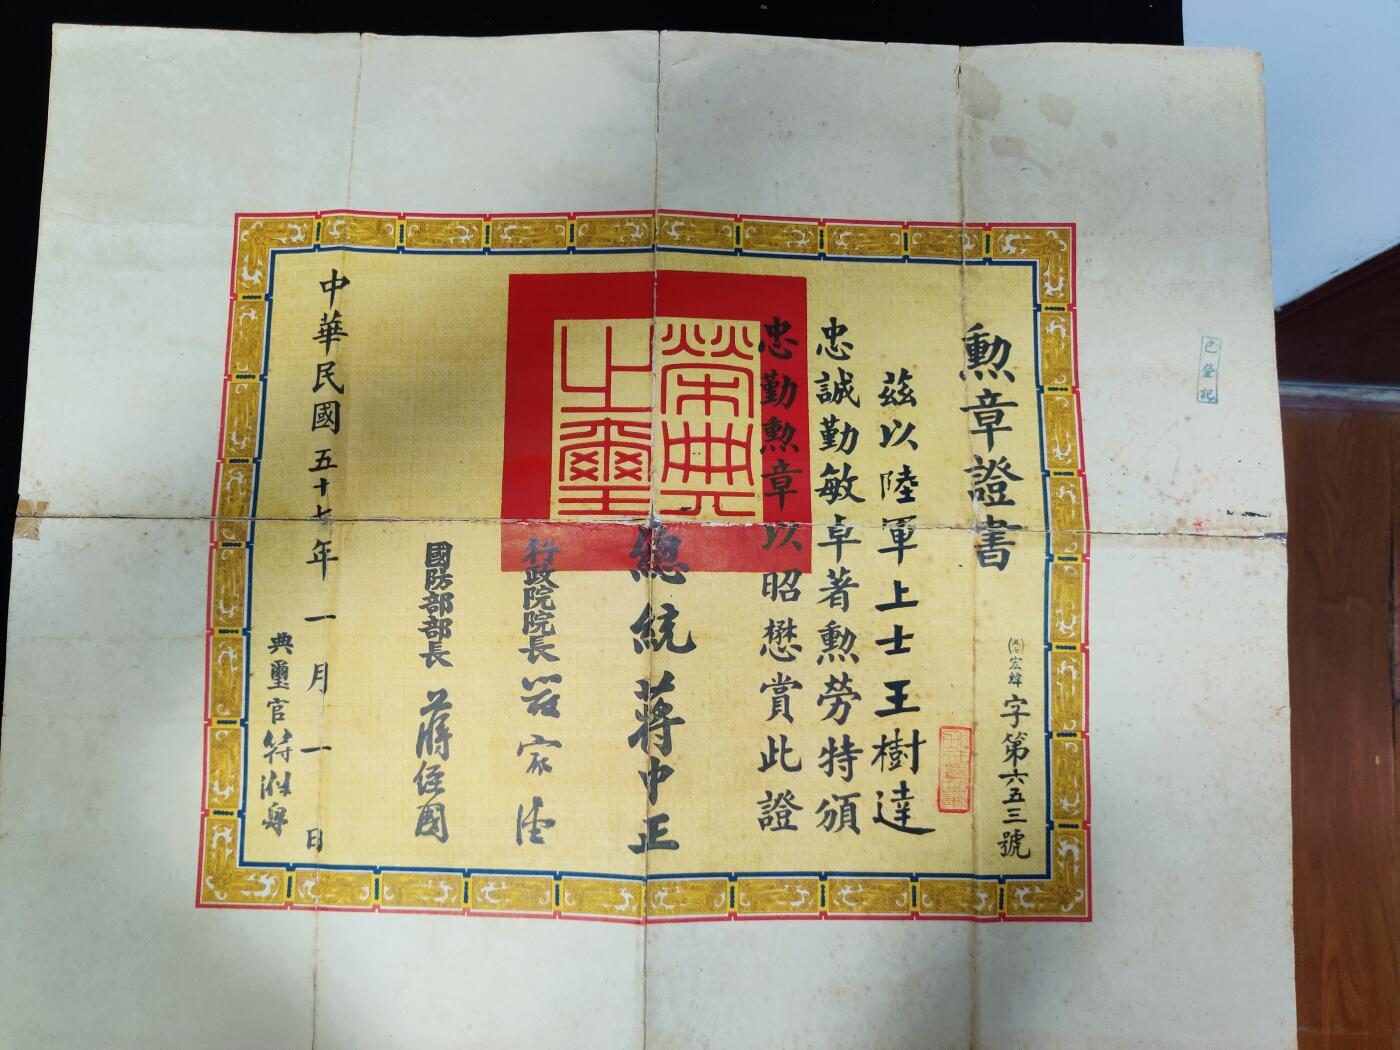 勳章證書
(五七)宏緯字第六五三號
茲以陸軍上士王樹達
忠誠勤敏卓著勳勞特頒
忠勤勳章以昭懋賞此證
榮典之璽
總統 蔣中正
行政院院長 嚴家淦
國防部部長 蔣經國
中華民國五十七年一月一日
典璽官
已登記